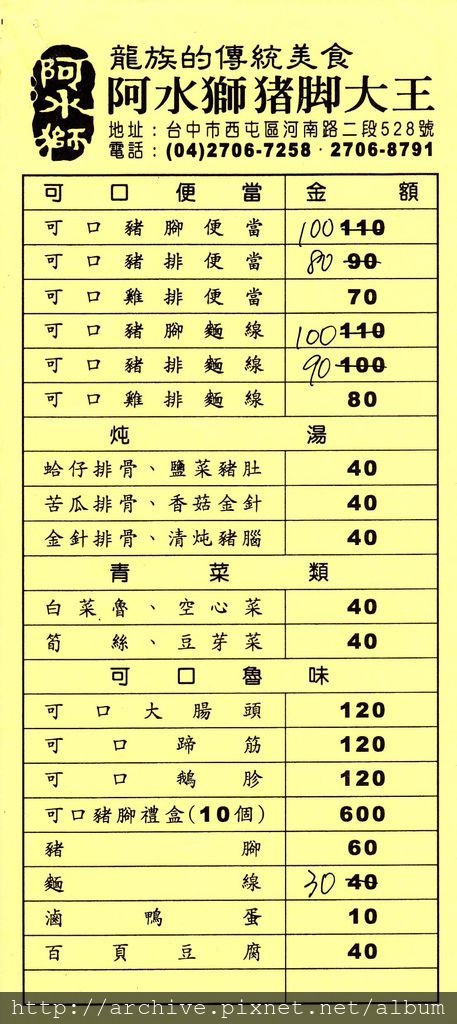 阿水獅
龍族的傳統美食
阿水獅猪脚大王
地址：台中市西屯區河南路二段528號
電話：(04)2706-7258・2706-8791
可口便當 金額
可口豬腳便當 100 110
可口豬排便當 80 90
可口雞排便當 70
可口豬腳麵線 100 110
可口豬排麵線 90 100
可口雞排麵線 80
炖湯
蛤仔排骨、鹽菜豬肚 40
苦瓜排骨、香菇金針 40
金針排骨、清炖豬腦 40
青菜類
白菜魯、空心菜 40
筍絲、豆芽菜 40
可口魯味
可口大腸頭 120
可口蹄筋 120
可口鵝胗 120
可口豬腳禮盒(10個) 600
豬腳 60
麵線 30 40
滷鴨蛋 10
百頁豆腐 40
http://archive.pixnet.net/album